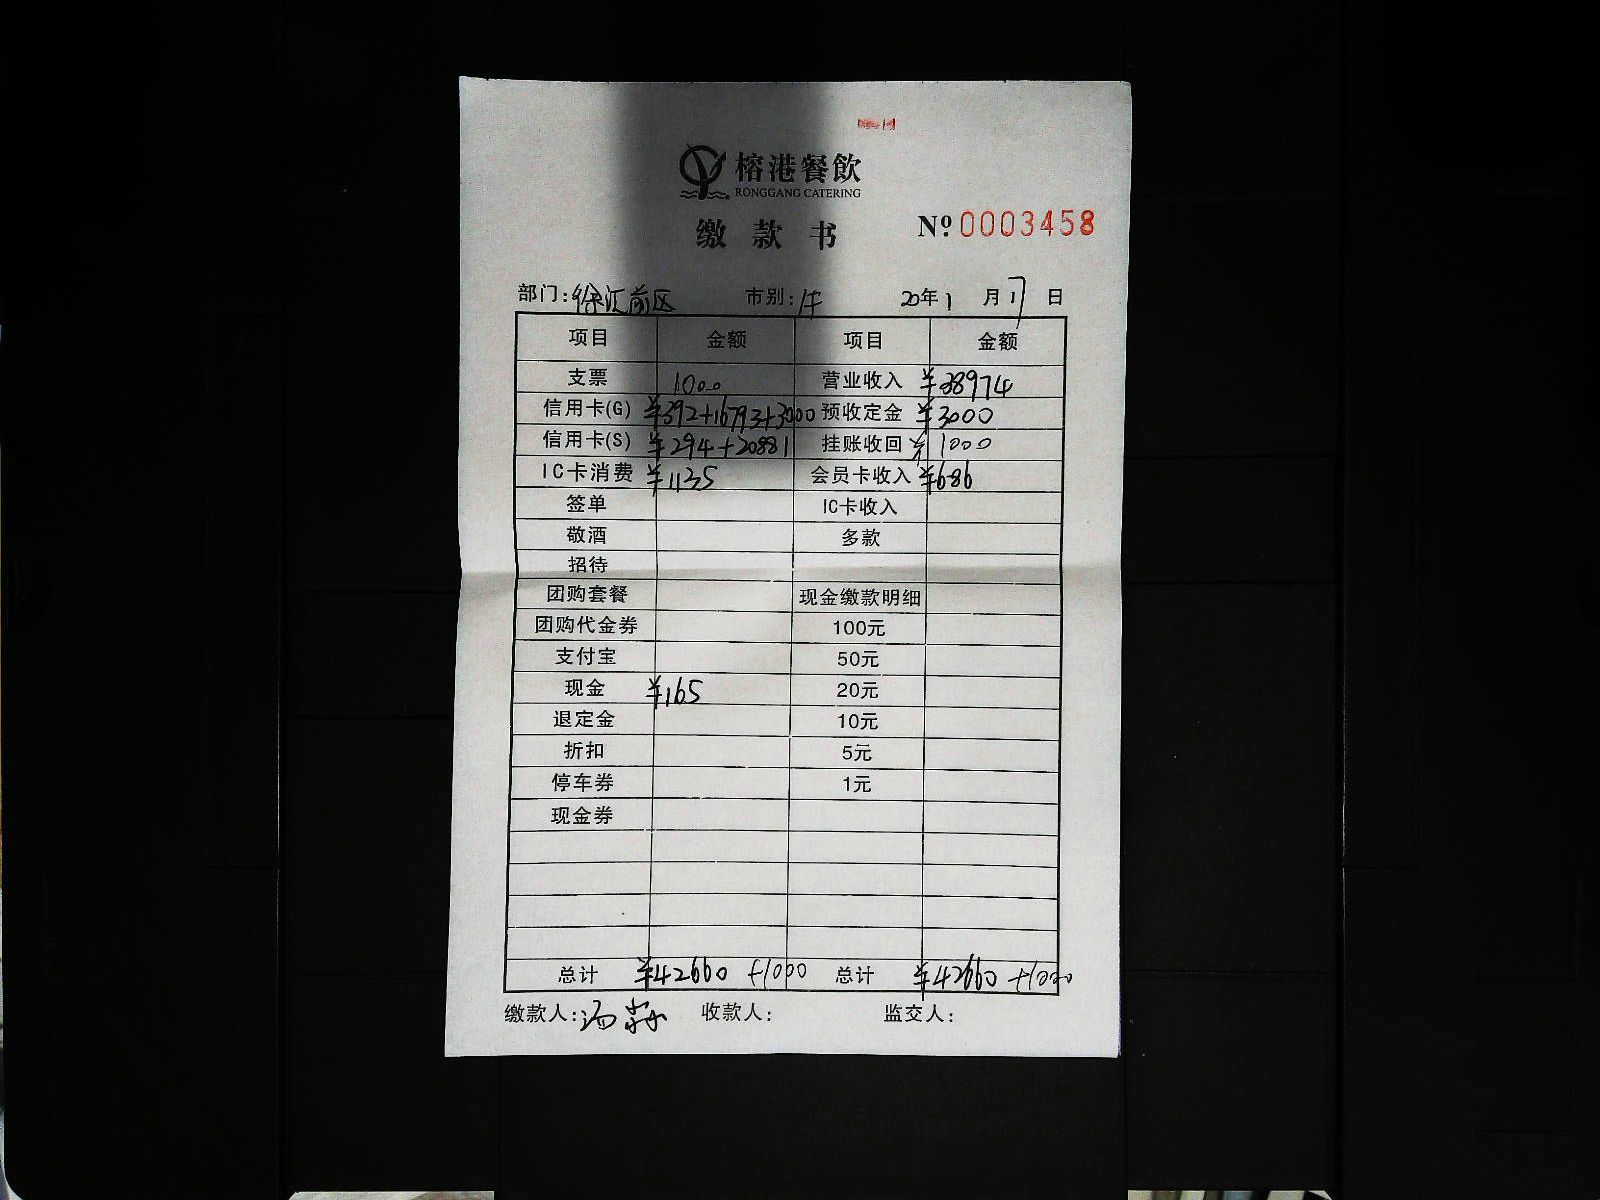 榕港餐飲
RONGGANG CATERING
缴款书
№ 0003458
部门:徐汇前区 市别:午 20年1月17日
项目 金额 项目 金额
支票 1000 营业收入 ¥38974
信用卡(G) ¥392+16793+3000 预收定金 ¥3000
信用卡(S) ¥294+20881 挂账收回 ¥1000
IC卡消费 ¥1135 会员卡收入 ¥686
签单 IC卡收入
敬酒 多款
招待
团购套餐 现金缴款明细
团购代金券 100元
支付宝 50元
现金 ¥165 20元
退定金 10元
折扣 5元
停车券 1元
现金券
总计 ¥42660 +1000 总计 ¥42660 +1000
缴款人:汤 收款人: 监交人: